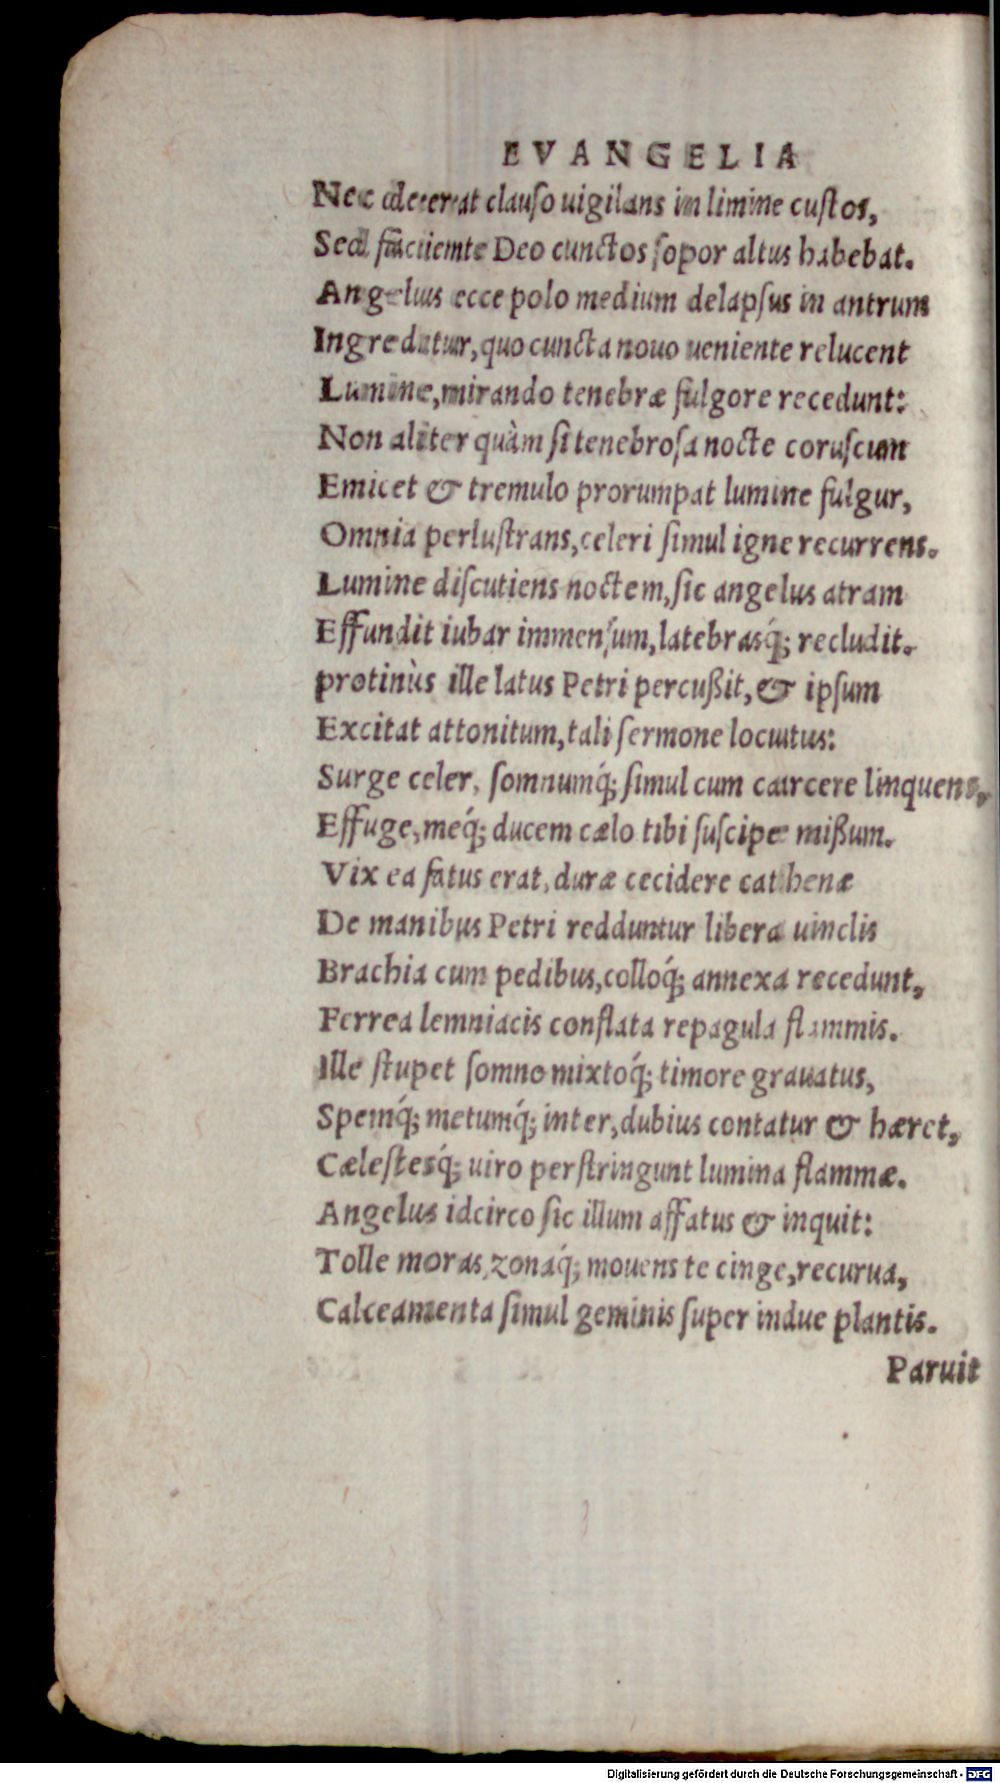 EVANGELIA
Nec deerat clauſo uigilans in limine cuſtos,
Sed faciente Deo cunctos ſopor altus habebat.
Angelus ecce polo medium delapſus in antrum
Ingreditur, quo cuncta nouo ueniente relucent
Lumine, mirando tenebræ fulgore recedunt:
Non aliter quàm ſi tenebroſa nocte coruſcum
Emicet & tremulo prorumpat lumine fulgur,
Omnia perluſtrans, celeri ſimul igne recurrens.
Lumine diſcutiens noctem, ſic angelus atram
Effundit iubar immenſum, latebrasq́; recludit.
protinùs ille latus Petri percußit, & ipſum
Excitat attonitum, tali ſermone locutus:
Surge celer, ſomnumq́; ſimul cum carcere linquens,
Effuge, meq́; ducem cælo tibi ſuſcipe mißum.
Vix ea fatus erat, duræ cecidere cathenæ
De manibus Petri redduntur libera uinclis
Brachia cum pedibus, colloq́; annexa recedunt,
Ferrea lemniacis conflata repagula flammis.
Ille ſtupet ſomno mixtoq́; timore grauatus,
Spemq́; metumq́; inter, dubius contatur & hæret,
Cæleſtesq́; uiro perſtringunt lumina flammæ.
Angelus idcirco ſic illum affatus & inquit:
Tolle moras, zonaq́; mouens te cinge, recurua,
Calceamenta ſimul geminis ſuper indue plantis.
Paruit
Digitalisierung gefördert durch die Deutsche Forschungsgemeinschaft - DFG